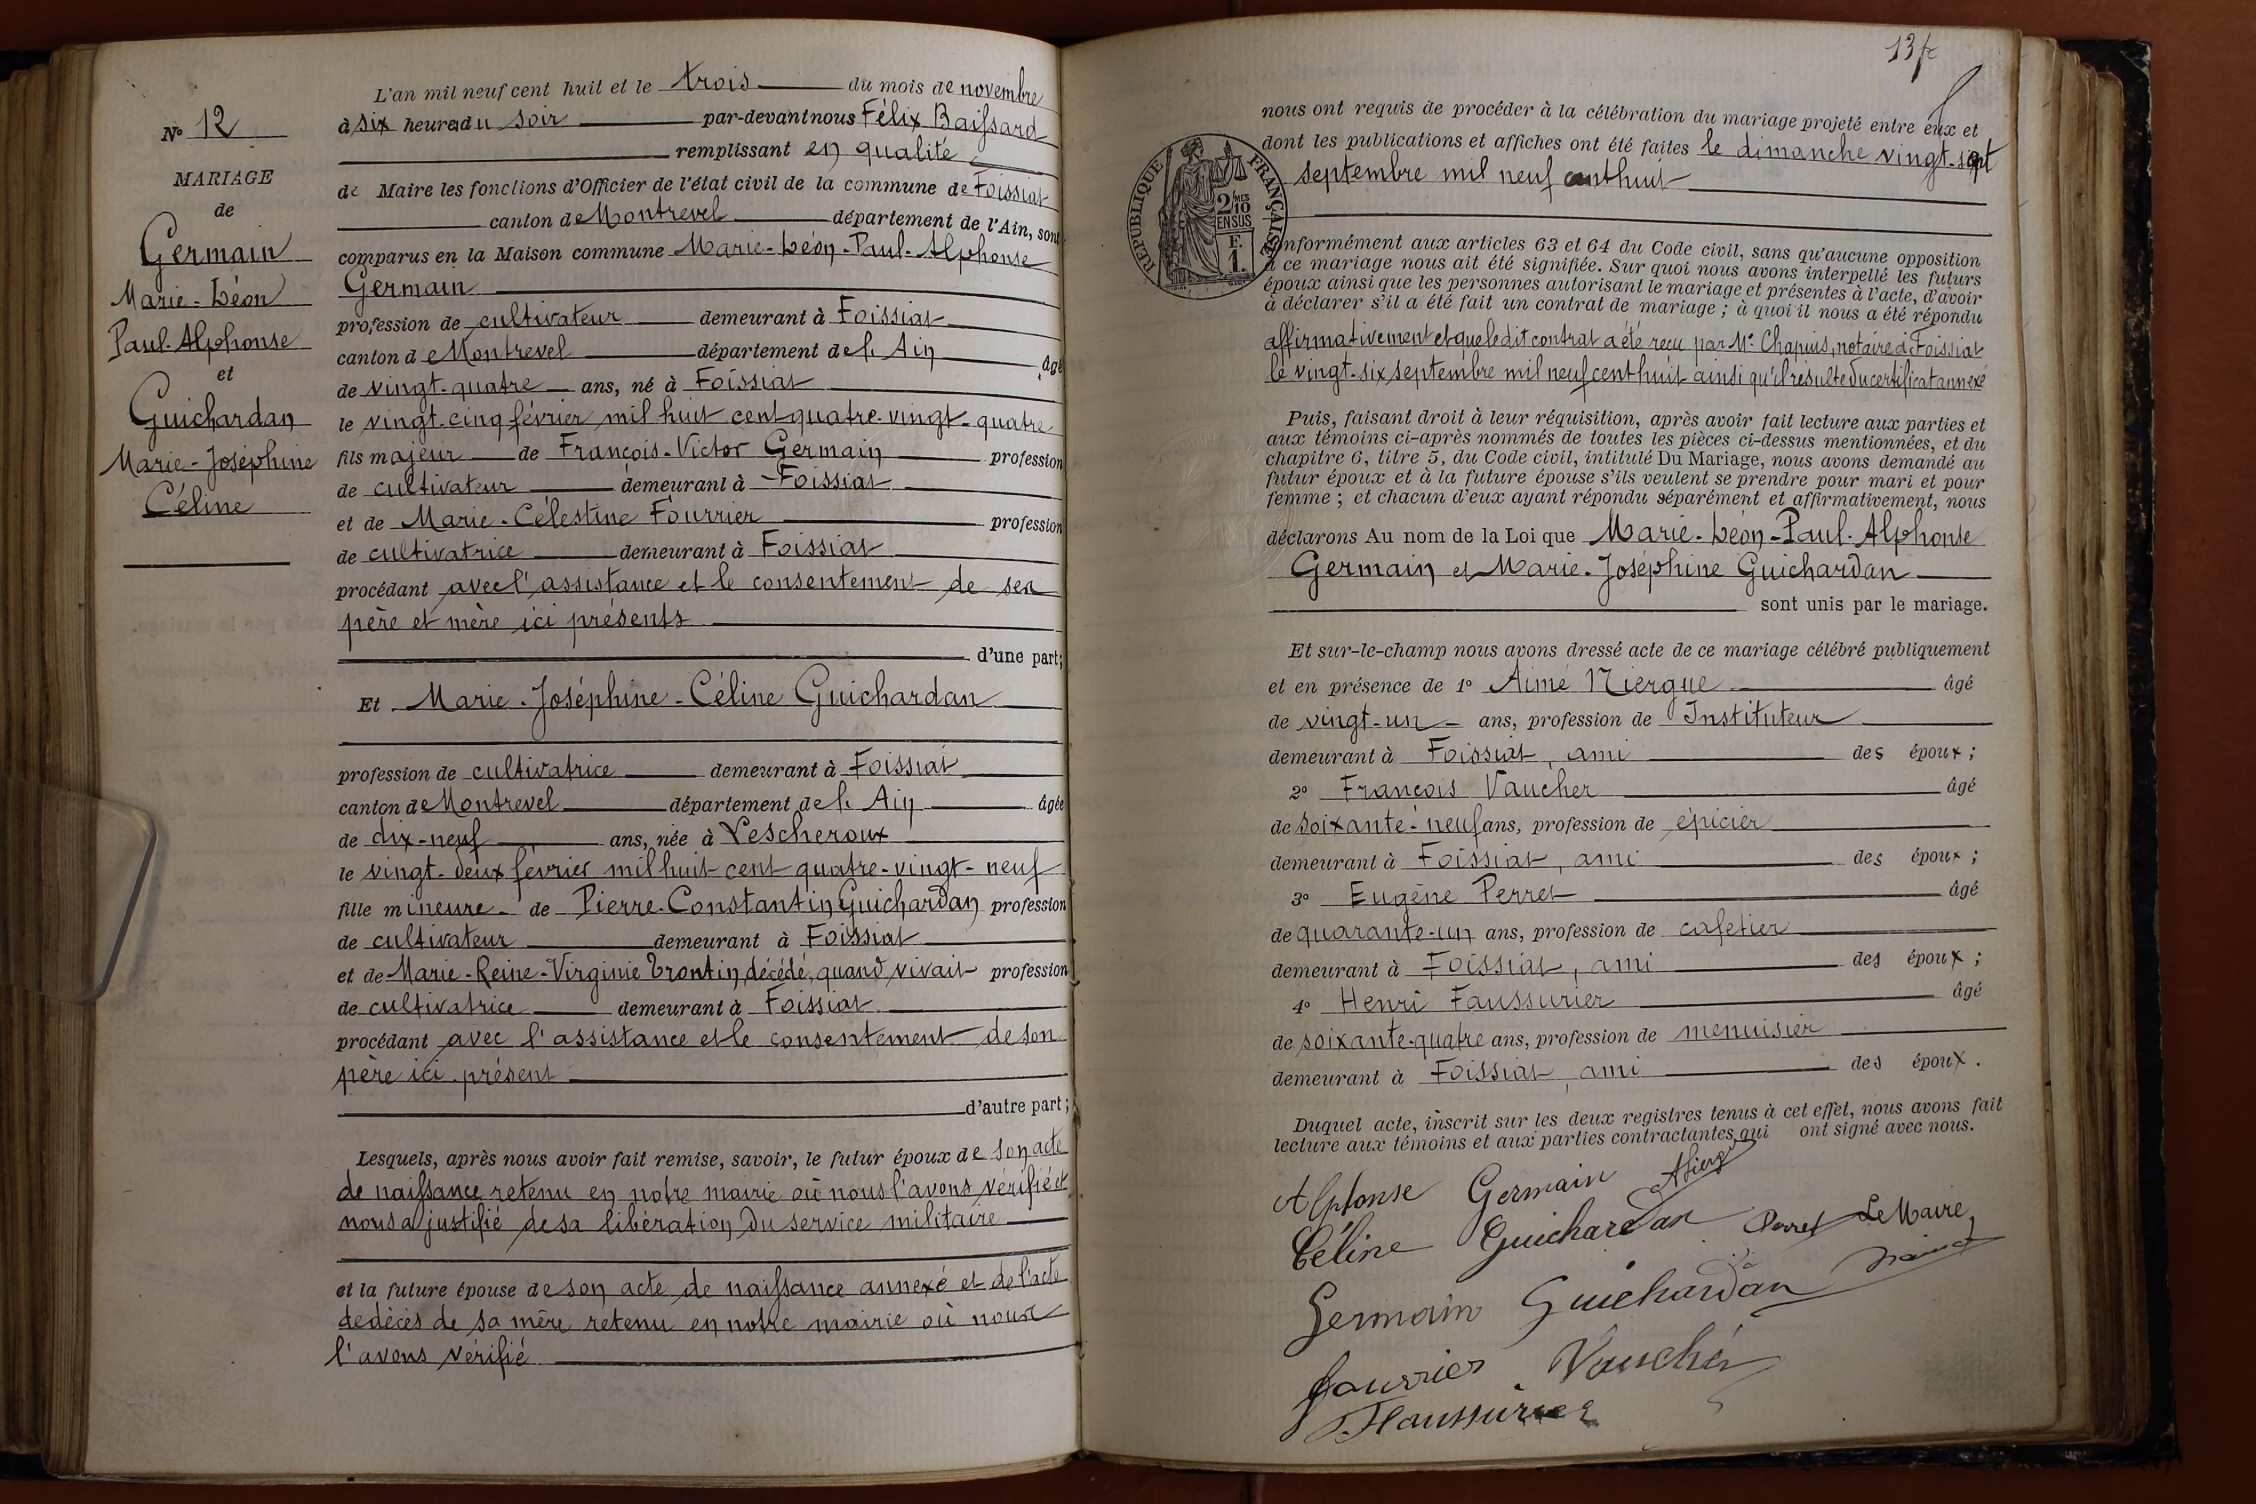 L'an mil neuf cent huit et le trois du mois de novembre
à six heures du soir par-devant nous Félix Baissard
remplissant en qualité
de Maire les fonctions d'Officier de l'état civil de la commune de Foissiat
canton de Montrevel département de l'Ain, sont
comparus en la Maison commune Marie-Léon-Paul-Alphonse
Germain
profession de cultivateur demeurant à Foissiat
canton de Montrevel département de l'Ain âgé
de vingt-quatre ans, né à Foissiat
le vingt-cinq février mil huit cent quatre-vingt-quatre
fils majeur de François-Victor Germain profession
de cultivateur demeurant à Foissiat
et de Marie-Célestine Fourrier profession
de cultivatrice demeurant à Foissiat
procédant avec l'assistance et le consentement de ses
père et mère ici présents
d'une part;
Et Marie-Joséphine-Céline Guichardan
profession de cultivatrice demeurant à Foissiat
canton de Montrevel département de l'Ain âgée
de dix-neuf ans, née à Lescheroux
le vingt-deux février mil huit cent quatre-vingt-neuf
fille mineure de Pierre-Constantin Guichardan profession
de cultivateur demeurant à Foissiat
et de Marie-Reine-Virginie Trontin, décédé, quand vivait profession
de cultivatrice demeurant à Foissiat
procédant avec l'assistance et le consentement de son
père ici présent
d'autre part;
Lesquels, après nous avoir fait remise, savoir, le futur époux de son acte
de naissance retenu en notre mairie où nous l'avons vérifié et
nous a justifié de sa libération du service militaire
et la future épouse de son acte de naissance annexé et de l'acte
de décès de sa mère retenu en notre mairie où nous
l'avons vérifié
No 12
MARIAGE
de
Germain
Marie-Léon
Paul-Alphonse
et
Guichardan
Marie-Joséphine
Céline
13
nous ont requis de procéder à la célébration du mariage projeté entre eux et
dont les publications et affiches ont été faites le dimanche vingt-sept
septembre mil neuf cent huit
RÉPUBLIQUE FRANÇAISE
2/10 MES
EN SUS
F.
1.
conformément aux articles 63 et 64 du Code civil, sans qu'aucune opposition
à ce mariage nous ait été signifiée. Sur quoi nous avons interpellé les futurs
époux ainsi que les personnes autorisant le mariage et présentes à l'acte, d'avoir
à déclarer s'il a été fait un contrat de mariage; à quoi il nous a été répondu
affirmativement et que le dit contrat a été reçu par Me Chapuis, notaire à Foissiat
le vingt-six septembre mil neuf cent huit ainsi qu'il résulte du certificat annexé
Puis, faisant droit à leur réquisition, après avoir fait lecture aux parties et
aux témoins ci-après nommés de toutes les pièces ci-dessus mentionnées, et du
chapitre 6, titre 5, du Code civil, intitulé Du Mariage, nous avons demandé au
futur époux et à la future épouse s'ils veulent se prendre pour mari et pour
femme; et chacun d'eux ayant répondu séparément et affirmativement, nous
déclarons Au nom de la Loi que Marie-Léon-Paul-Alphonse
Germain et Marie-Joséphine Guichardan
sont unis par le mariage.
Et sur-le-champ nous avons dressé acte de ce mariage célébré publiquement
et en présence de 1o Aimé Niergue âgé
de vingt-un ans, profession de Instituteur
demeurant à Foissiat, ami des époux;
2o François Vaucher âgé
de soixante-neuf ans, profession de épicier
demeurant à Foissiat, ami des époux;
3o Eugène Perret âgé
de quarante-un ans, profession de cafetier
demeurant à Foissiat, ami des époux;
4o Henri Faussurier âgé
de soixante-quatre ans, profession de menuisier
demeurant à Foissiat, ami des époux.
Duquel acte, inscrit sur les deux registres tenus à cet effet, nous avons fait
lecture aux témoins et aux parties contractantes, qui ont signé avec nous.
Alphonse Germain
Céline Guichardan Perret Le Maire,
Germain Guichardan
Fourrier Vaucher
Faussurier